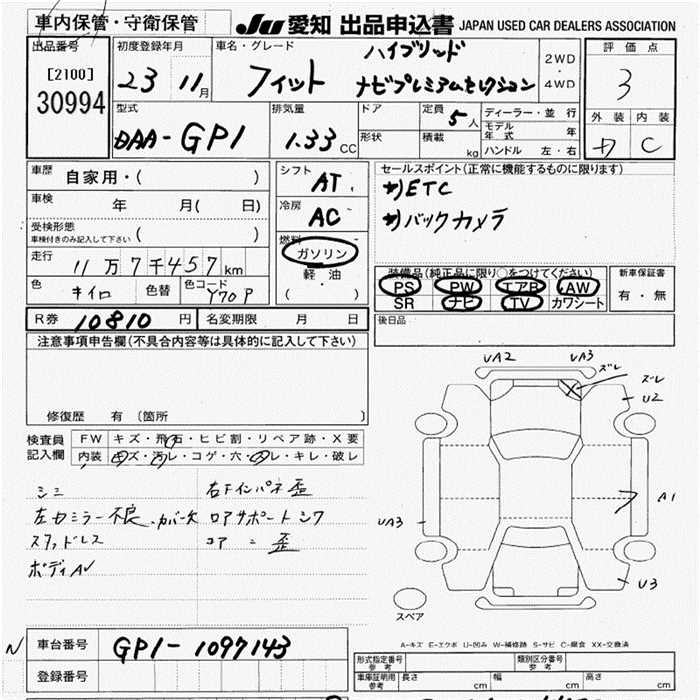 車内保管・守衛保管
JU 愛知 出品申込書 JAPAN USED CAR DEALERS ASSOCIATION
出品番号 初度登録年月 車名・グレード 評価点
[2100] 30994
23 11月
ハイブリッド
フィット ナビプレミアムセレクション
2WD・4WD
3
型式 排気量 ドア 定員 5人 ディーラー・並行
外装 内装
DAA-GP1 1.33 CC 形状 積載 kg モデル年式 年
ハンドル 左・右
C
車歴 自家用・( )
車検 年 月( 日)
受検形態 車検付きのみ記入して下さい ( )
走行 11万7千457km
色 キイロ 色替 色コード Y70P
シフト AT
冷房 AC
燃料 ガソリン・軽油・( )
セールスポイント(正常に機能するものに限ります)
カ)ETC
カ)バックカメラ
装備品(純正品に限り○をつけてください) 新車保証書
PS PW エアB AW
SR ナビ TV カワシート
有・無
R券 10810円 名変期限 月 日
後日品
注意事項申告欄(不具合内容等は具体的に記入して下さい)
修復歴 有 〔箇所
検査員記入欄
FW キズ・飛石・ヒビ割・リペア跡・X要
内装 キズ・汚レ・コゲ・穴・クレ・キレ・破レ
シミ 右下インパネ歪
左カミラー不良・カバー欠 ロアサポートシワ
スタッドレス コア 〃 歪
ボディAU
UA2 UA3 ズレ
X ズレ
U2
UA3 A1
U3
スペア
A-キズ E-エクボ U-凹み W-補修跡 S-サビ C-腐食 XX-交換済
N 車台番号 GP1-1097143
登録番号
形式指定番号 参考 類別区分番号 参考
車庫証明用 参考 長さ cm 幅 cm 高さ cm